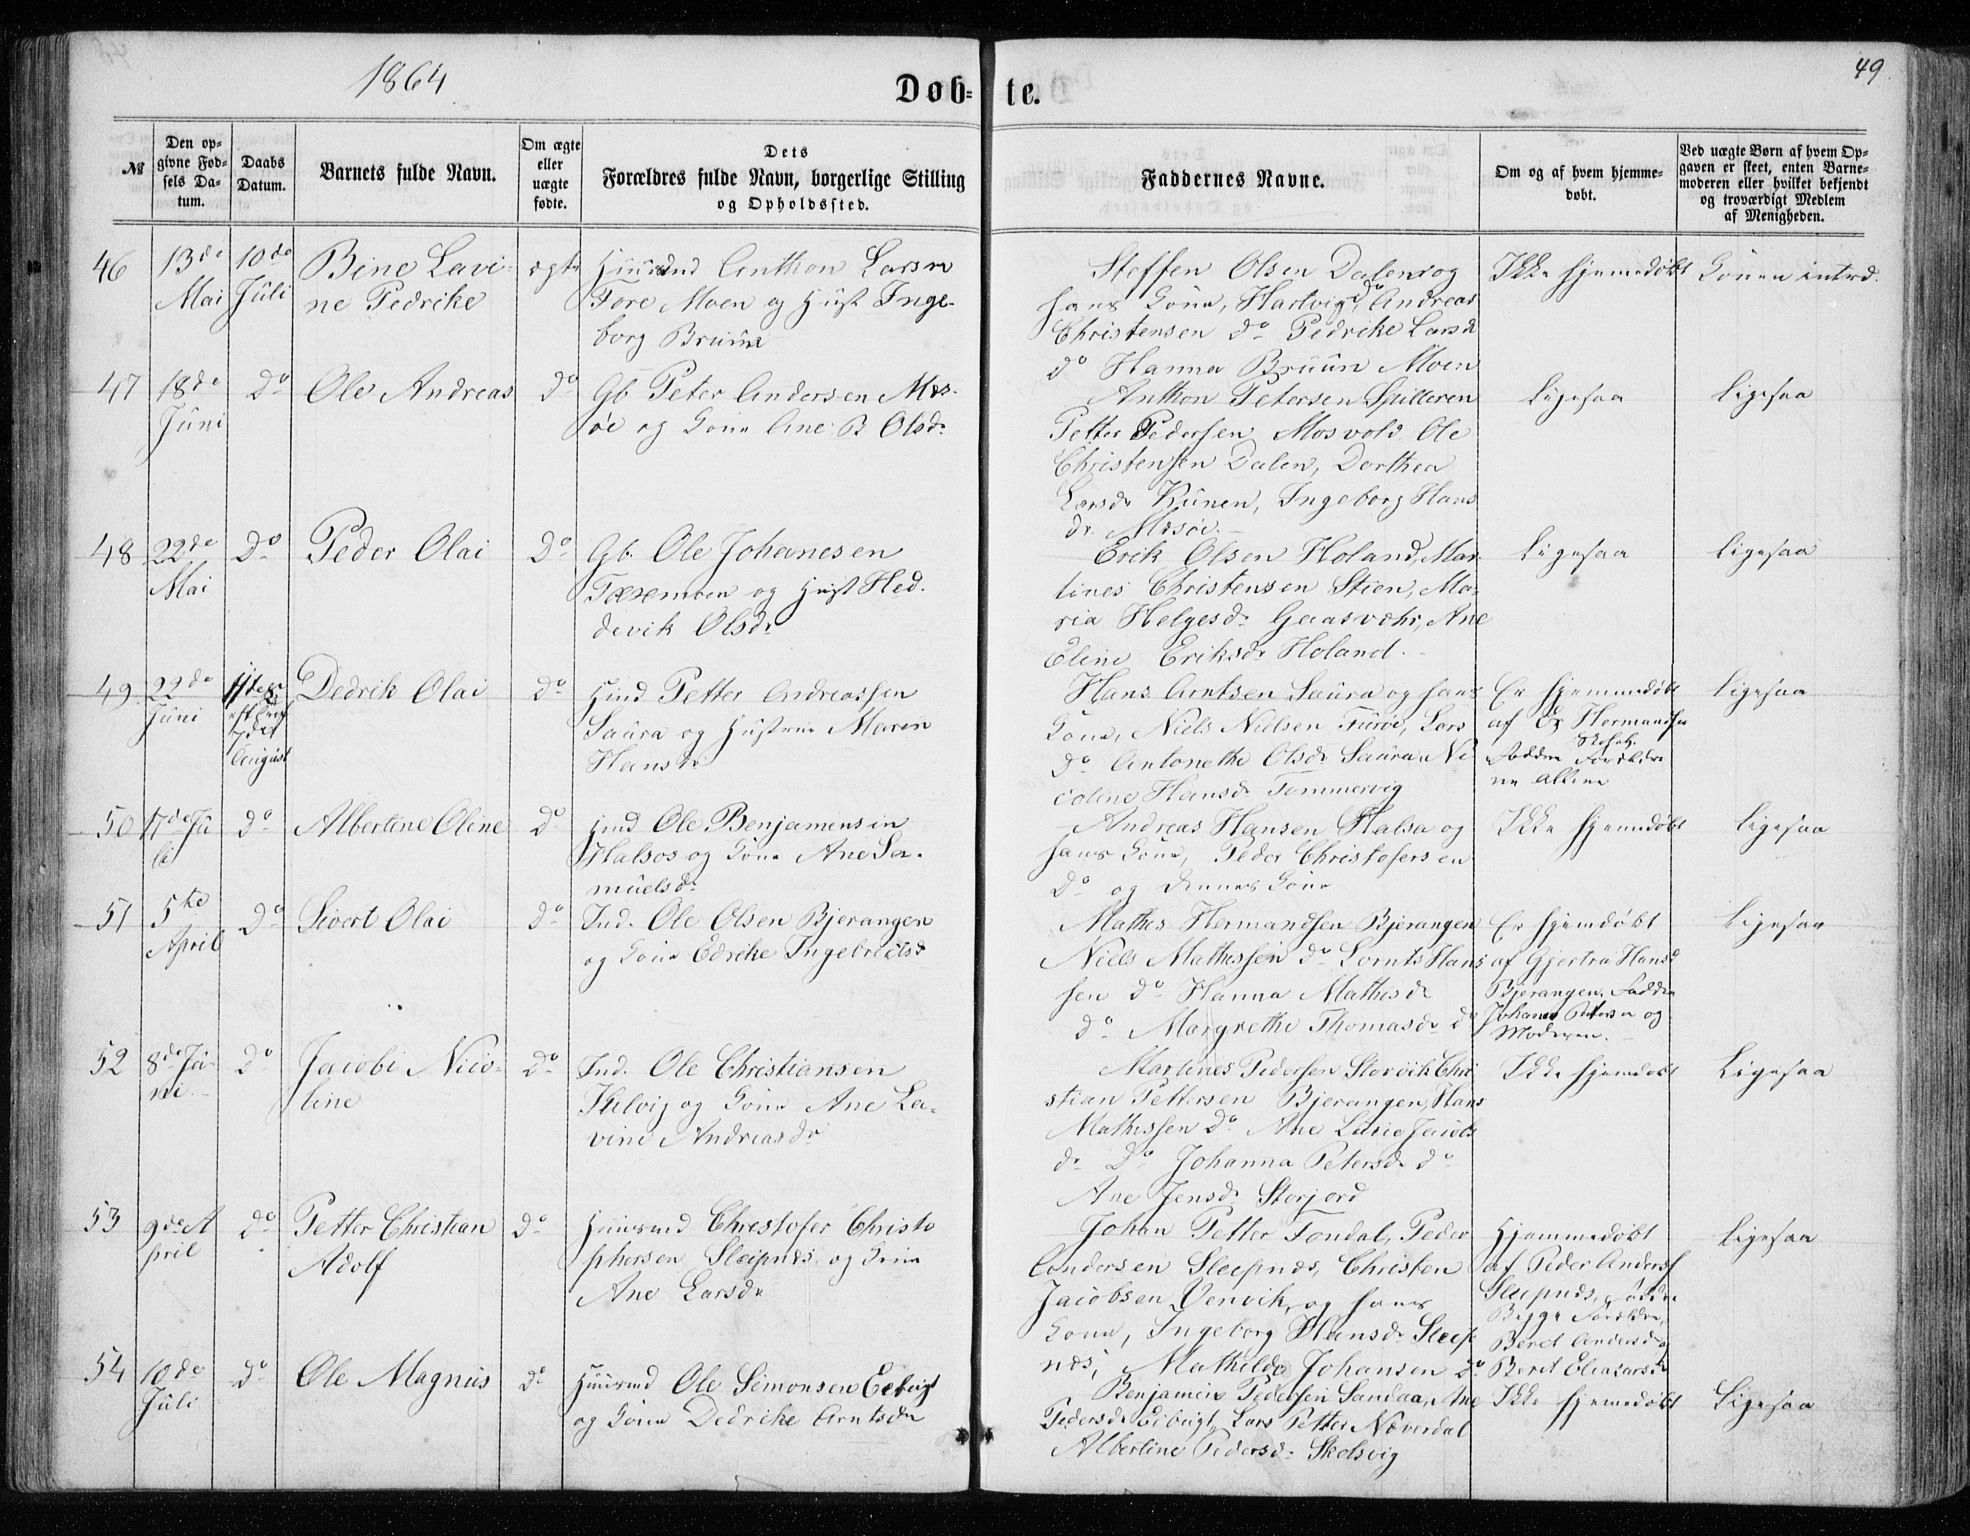 1864
49.
Døb- te.
№
Den op-
givne Fød-
sels Da-
tum.
Daabs
Datum.
Barnets fulde Navn.
Om ægte
eller
uægte
fødte.
Dets
Forældres fulde Navn, borgerlige Stilling
og Opholdssted.
Faddernes Navne.
Om og af hvem hjemme-
døbt.
Ved uægte Børn af hvem Op-
gaven er skeet, enten Barne-
moderen eller hvilket bekjendt
og troværdigt Medlem
af Menigheden.
46
13de
Mai
10de
Juli
Bine Lavi-
ne Pedrike
ægte
Huusmd Anthon Larsen
Fore Moen og Hust Inge-
borg Bruun
Steffen Olsen Dalen og
hans Kone, Hartvig do, Andreas
Christensen do Pedrike Larsd
do Hanna Bruun Moen
Ikke hjemedøbt
Konen introd.
47
18de
Juni
do
Ole Andreas
do
Gb Peter Andersen Mes-
øe og Kone Ane B Olsdr
Anthon Petersen Spilleren
Petter Pedersen Mosvold, Ole
Christensen Dalen, Dorthea
Larsdr Kunen, Ingeborg Hans
dr Mesøe.
ligesaa
ligesaa
48
22de
Mai
do
Peder Olai
do
Gb. Ole Johanesen
og Hust Hed-
devik Olsdr
Erik Olsen Holand, Mar-
tines Christensen Stien, Ma-
ria Helgesdr Gaasvær, Ane
Eline Eriksdr Holand.
ligesaa
ligesaa
49
22de
Juni
7de
August
Dedrik Olai
do
Hmd Petter Andreassen
Saura og Hustrue Maren
Hansdr
Hans Arntsen Saura og hans
Kone, Niels Nielsen Furøe, Lars
do Antonethe Olsdr Saura Ni
coline Hansdr Tommervig
Er hjemmedøbt
af Hermandsen
Faddre Forældre
ne alene
ligesaa
50
17de Ju
li
do
Albertine Oline
do
Hmd Ole Benjaminsen
Halsos og Kone Ane Sa-
muelsdr
Andreas Hansen Halsa og
hans Kone, Peder Christofersen
do og dennes Kone
Ikke hjemedøbt
ligesaa
51
5te
April
do
Sivert Olai
do
Ind. Ole Olsen Bjerangen
og Kone Edrike Ingebrigtsd
Mathis Hermandsen Bjerangen
Niels Mathissen do Lornts Hans
sen do Hanna Mathisdr
do Margrethe Thomasdr do
Er hjemdøbt
af Gjertra Hansd
Bjerangen. Faddre
Johanes Petersen og
Moderen.
Ligesaa
52
8de Ju-
ni
do
Jacobi Nico-
line
do
Ind. Ole Christiansen
Kilvig og Kone Ane La-
vine Andreasdr
Martines Pedersen Storvik Chri
stian Pettersen Bjerangen, Hans
Mathissen do Ane Lucie Jacobs
dr do Johanna Petersdr do
Ane Jensdr Storjord
Ikke hjemdøbt
Ligesaa
53
9de A
pril
do
Petter Christian
Adolf
do
Huusmd Christofer Christo
phersen Sleipnes og Kone
Ane Larsdr
Johan Petter Fondal, Peder
Andersen Sleipnes, Christen
Jacobsen Venvik, og hans
Kone, Ingeborg Hansdr Sleip
nes, Mathilde Johansen do
Hjemmedøbt
af Peder Anders
Sleipnes, Faddre
Begge Forældre,
Beret Andersd og
Beret Eliasarsd
ligesaa
54
10de
Juli
do
Ole Magnus
do
Huusmd Ole Simonsen Eebugt
og Kone Dedrike Arntsdr
Benjamin Pedersen Sandaa, Ane
Pedersdr Eebugt, Lars Petter Neverdal
Albertine Pedersdr Skolsvig
Ikke hjemedøbt
Ligesaa